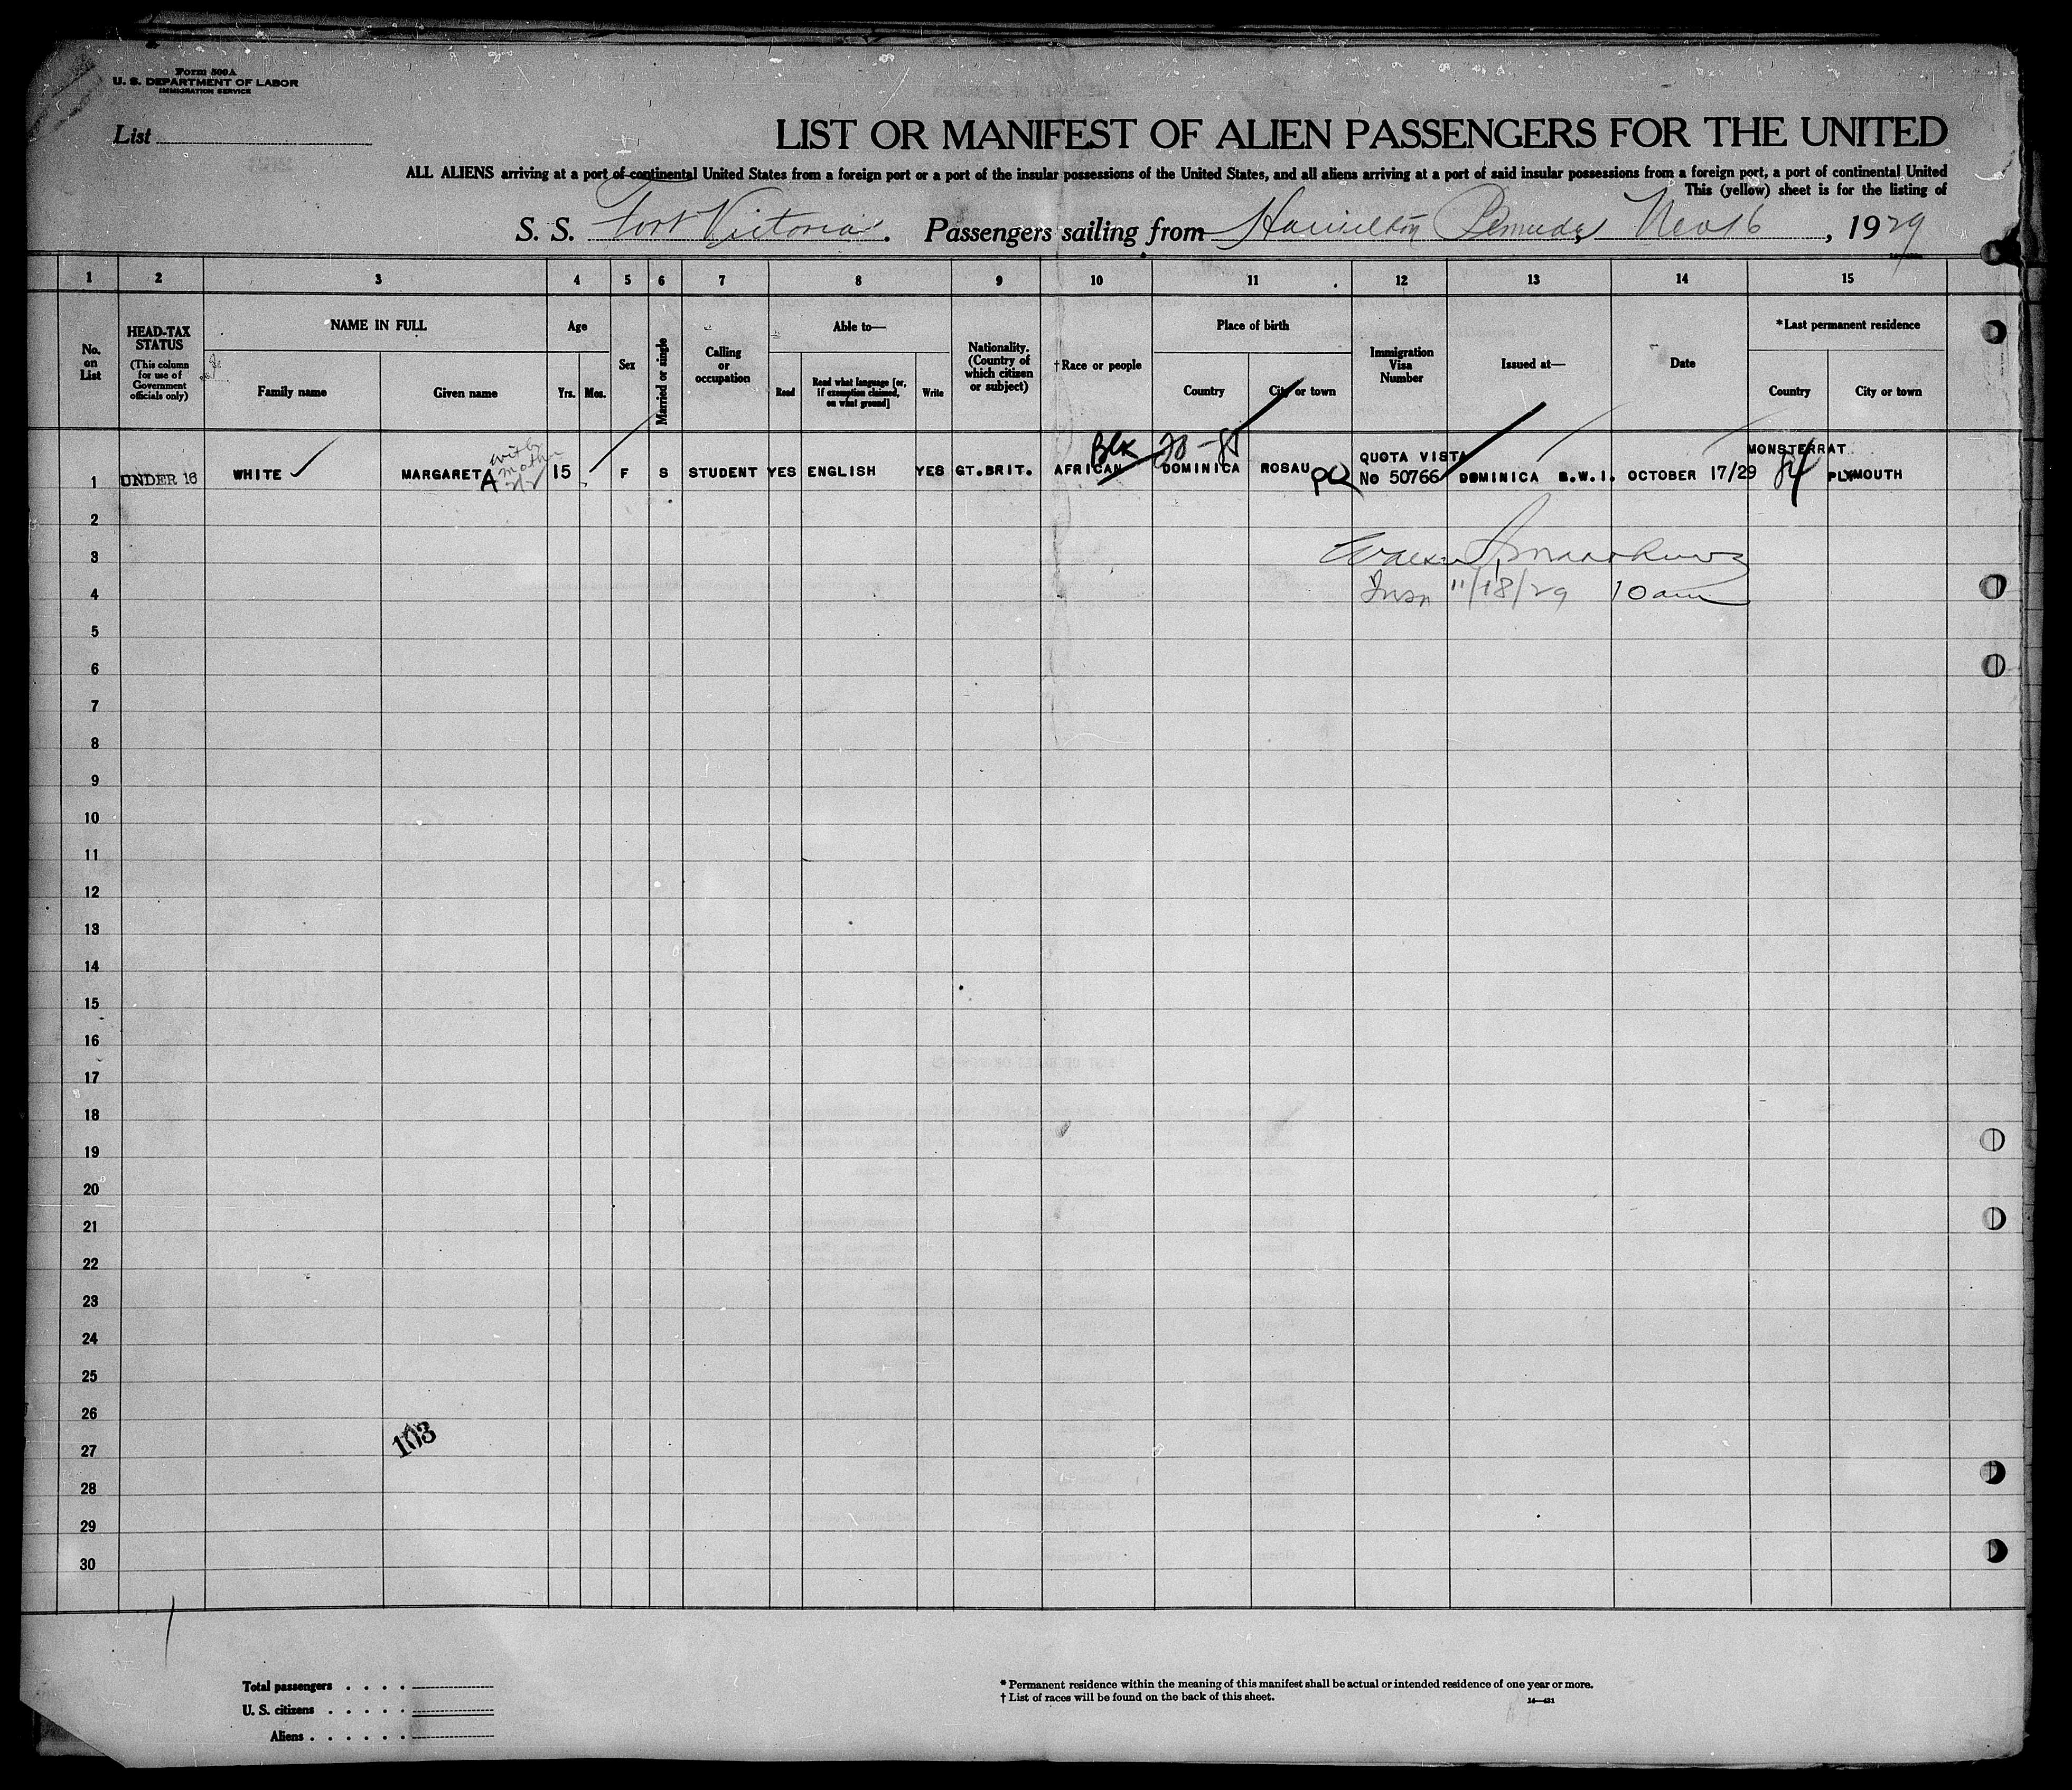 Form 500A
U. S. DEPARTMENT OF LABOR
IMMIGRATION SERVICE
List
LIST OR MANIFEST OF ALIEN PASSENGERS FOR THE UNITED
ALL ALIENS arriving at a port of continental United States from a foreign port or a port of the insular possessions of the United States, and all aliens arriving at a port of said insular possessions from a foreign port, a port of continental United
This (yellow) sheet is for the listing of
S. S. Fort Victoria. Passengers sailing from Hamilton Bermuda Nov 16, 1929
1 2 3 4 5 6 7 8 9 10 11 12 13 14 15
No. on List
HEAD-TAX STATUS
(This column for use of Government officials only)
NAME IN FULL
Family name
Given name
Age
Yrs. Mos.
Sex
Married or single
Calling or occupation
Able to—
Read
Read what language [or, if exemption claimed, on what ground]
Write
Nationality. (Country of which citizen or subject)
†Race or people
Place of birth
Country
City or town
Immigration Visa Number
Issued at—
Date
*Last permanent residence
Country
City or town
with mother
Blk
1 UNDER 16 WHITE MARGARET A 15 F S STUDENT YES ENGLISH YES GT.BRIT. AFRICAN DOMINICA ROSAU QUOTA VISTA No 50766 DOMINICA B.W.I. OCTOBER 17/29 MONSTERRAT 84 PLYMOUTH
2
3
4 11/18/29 10am
5
6
7
8
9
10
11
12
13
14
15
16
17
18
19
20
21
22
23
24
25
26
103
27
28
29
30
Total passengers . . . .
U. S. citizens . . . . .
Aliens . . . . . .
* Permanent residence within the meaning of this manifest shall be actual or intended residence of one year or more.
† List of races will be found on the back of this sheet.
14—421